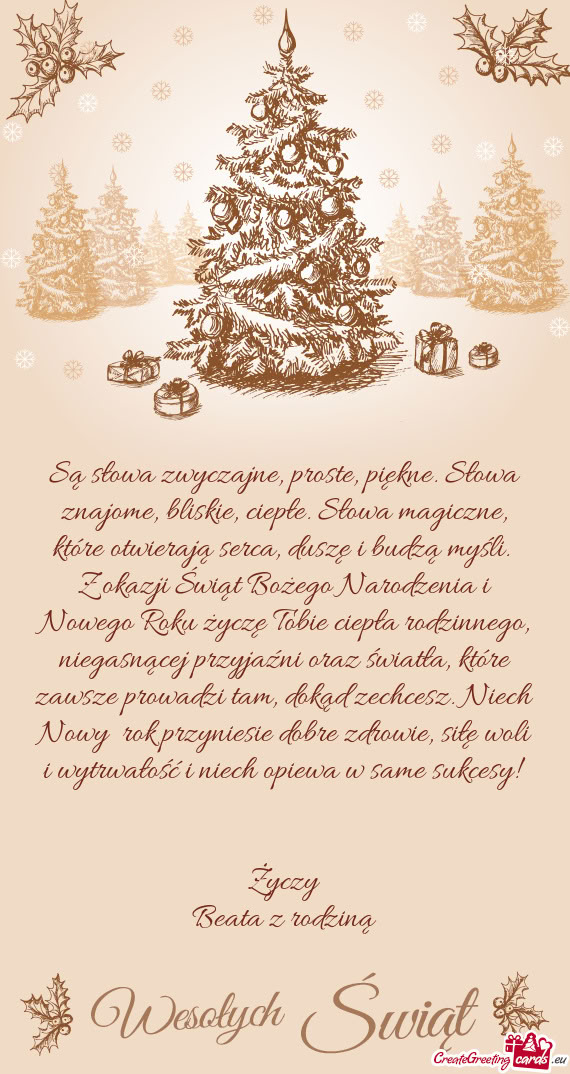 Są słowa zwyczajne, proste, piękne. Słowa
znajome, bliskie, ciepłe. Słowa magiczne,
które otwierają serca, duszę i budzą myśli.
Z okazji Świąt Bożego Narodzenia i
Nowego Roku życzę Tobie ciepła rodzinnego,
niegasnącej przyjaźni oraz światła, które
zawsze prowadzi tam, dokąd zechcesz. Niech
Nowy rok przyniesie dobre zdrowie, siłę woli
i wytrwałość i niech opiewa w same sukcesy!
Życzy
Beata z rodziną
Wesołych Świąt
CreateGreetingcards.eu